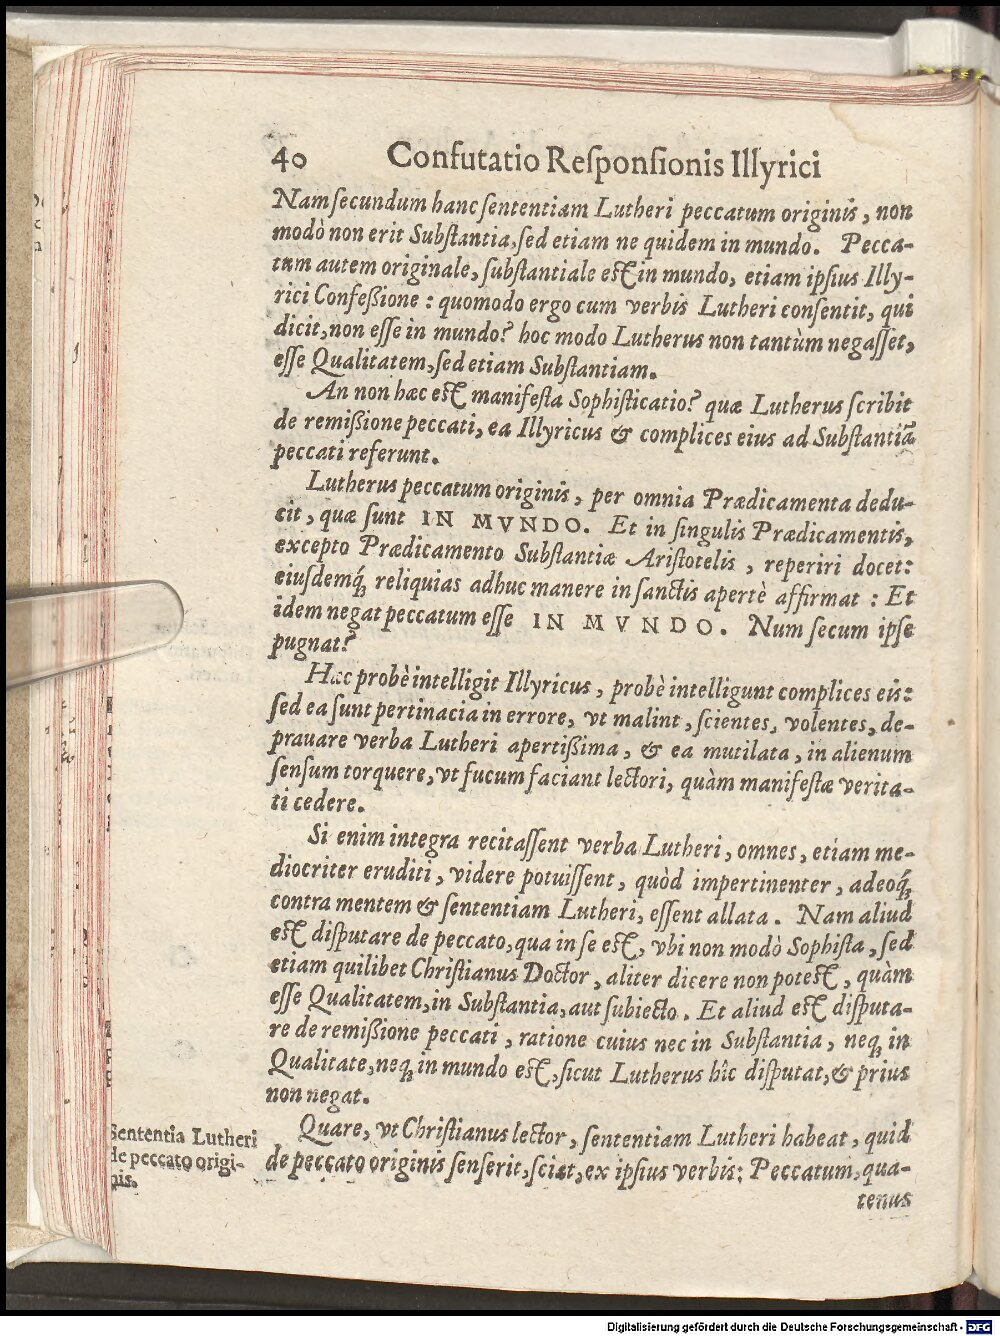 40 Confutatio Reſponſionis Illyrici
Nam ſecundum hanc ſententiam Lutheri peccatum originis, non
modò non erit Subſtantia, ſed etiam ne quidem in mundo. Pecca-
tum autem originale, ſubſtantiale eſt in mundo, etiam ipſius Illy-
rici Confeßione: quomodo ergo cum verbis Lutheri conſentit, qui
dicit, non eſſe in mundo? hoc modo Lutherus non tantùm negaſſet,
eſſe Qualitatem, ſed etiam Subſtantiam.
An non hæc eſt manifeſta Sophiſticatio? quæ Lutherus ſcribit
de remißione peccati, ea Illyricus & complices eius ad Subſtantiã
peccati referunt.
Lutherus peccatum originis, per omnia Prædicamenta dedu-
cit, quæ ſunt IN MVNDO. Et in ſingulis Prædicamentis,
excepto Prædicamento Subſtantiæ Ariſtotelis, reperiri docet:
eiuſdemq́; reliquias adhuc manere in ſanctis apertè affirmat: Et
idem negat peccatum eſſe IN MVNDO. Num ſecum ipſe
pugnat?
Hæc probè intelligit Illyricus, probè intelligunt complices eis:
ſed ea ſunt pertinacia in errore, vt malint, ſcientes, volentes, de-
prauare verba Lutheri apertißima, & ea mutilata, in alienum
ſenſum torquere, vt fucum faciant lectori, quàm manifeſtæ verita-
ti cedere.
Si enim integra recitaſſent verba Lutheri, omnes, etiam me-
diocriter eruditi, videre potuiſſent, quòd impertinenter, adeoq́;
contra mentem & ſententiam Lutheri, eſſent allata. Nam aliud
eſt diſputare de peccato, qua in ſe eſt, vbi non modò Sophiſta, ſed
etiam quilibet Chriſtianus Doctor, aliter dicere non poteſt, quàm
eſſe Qualitatem, in Subſtantia, aut ſubiecto. Et aliud eſt diſputa-
re de remißione peccati, ratione cuius nec in Subſtantia, neq; in
Qualitate, neq; in mundo eſt, ſicut Lutherus hîc diſputat, & prius
non negat.
Quare, vt Chriſtianus lector, ſententiam Lutheri habeat, quid
de peccato originis ſenſerit, ſciat, ex ipſius verbis: Peccatum, qua-
tenus
Sententia Lutheri
de peccato origi-
nis.
Digitalisierung gefördert durch die Deutsche Forschungsgemeinschaft - DFG